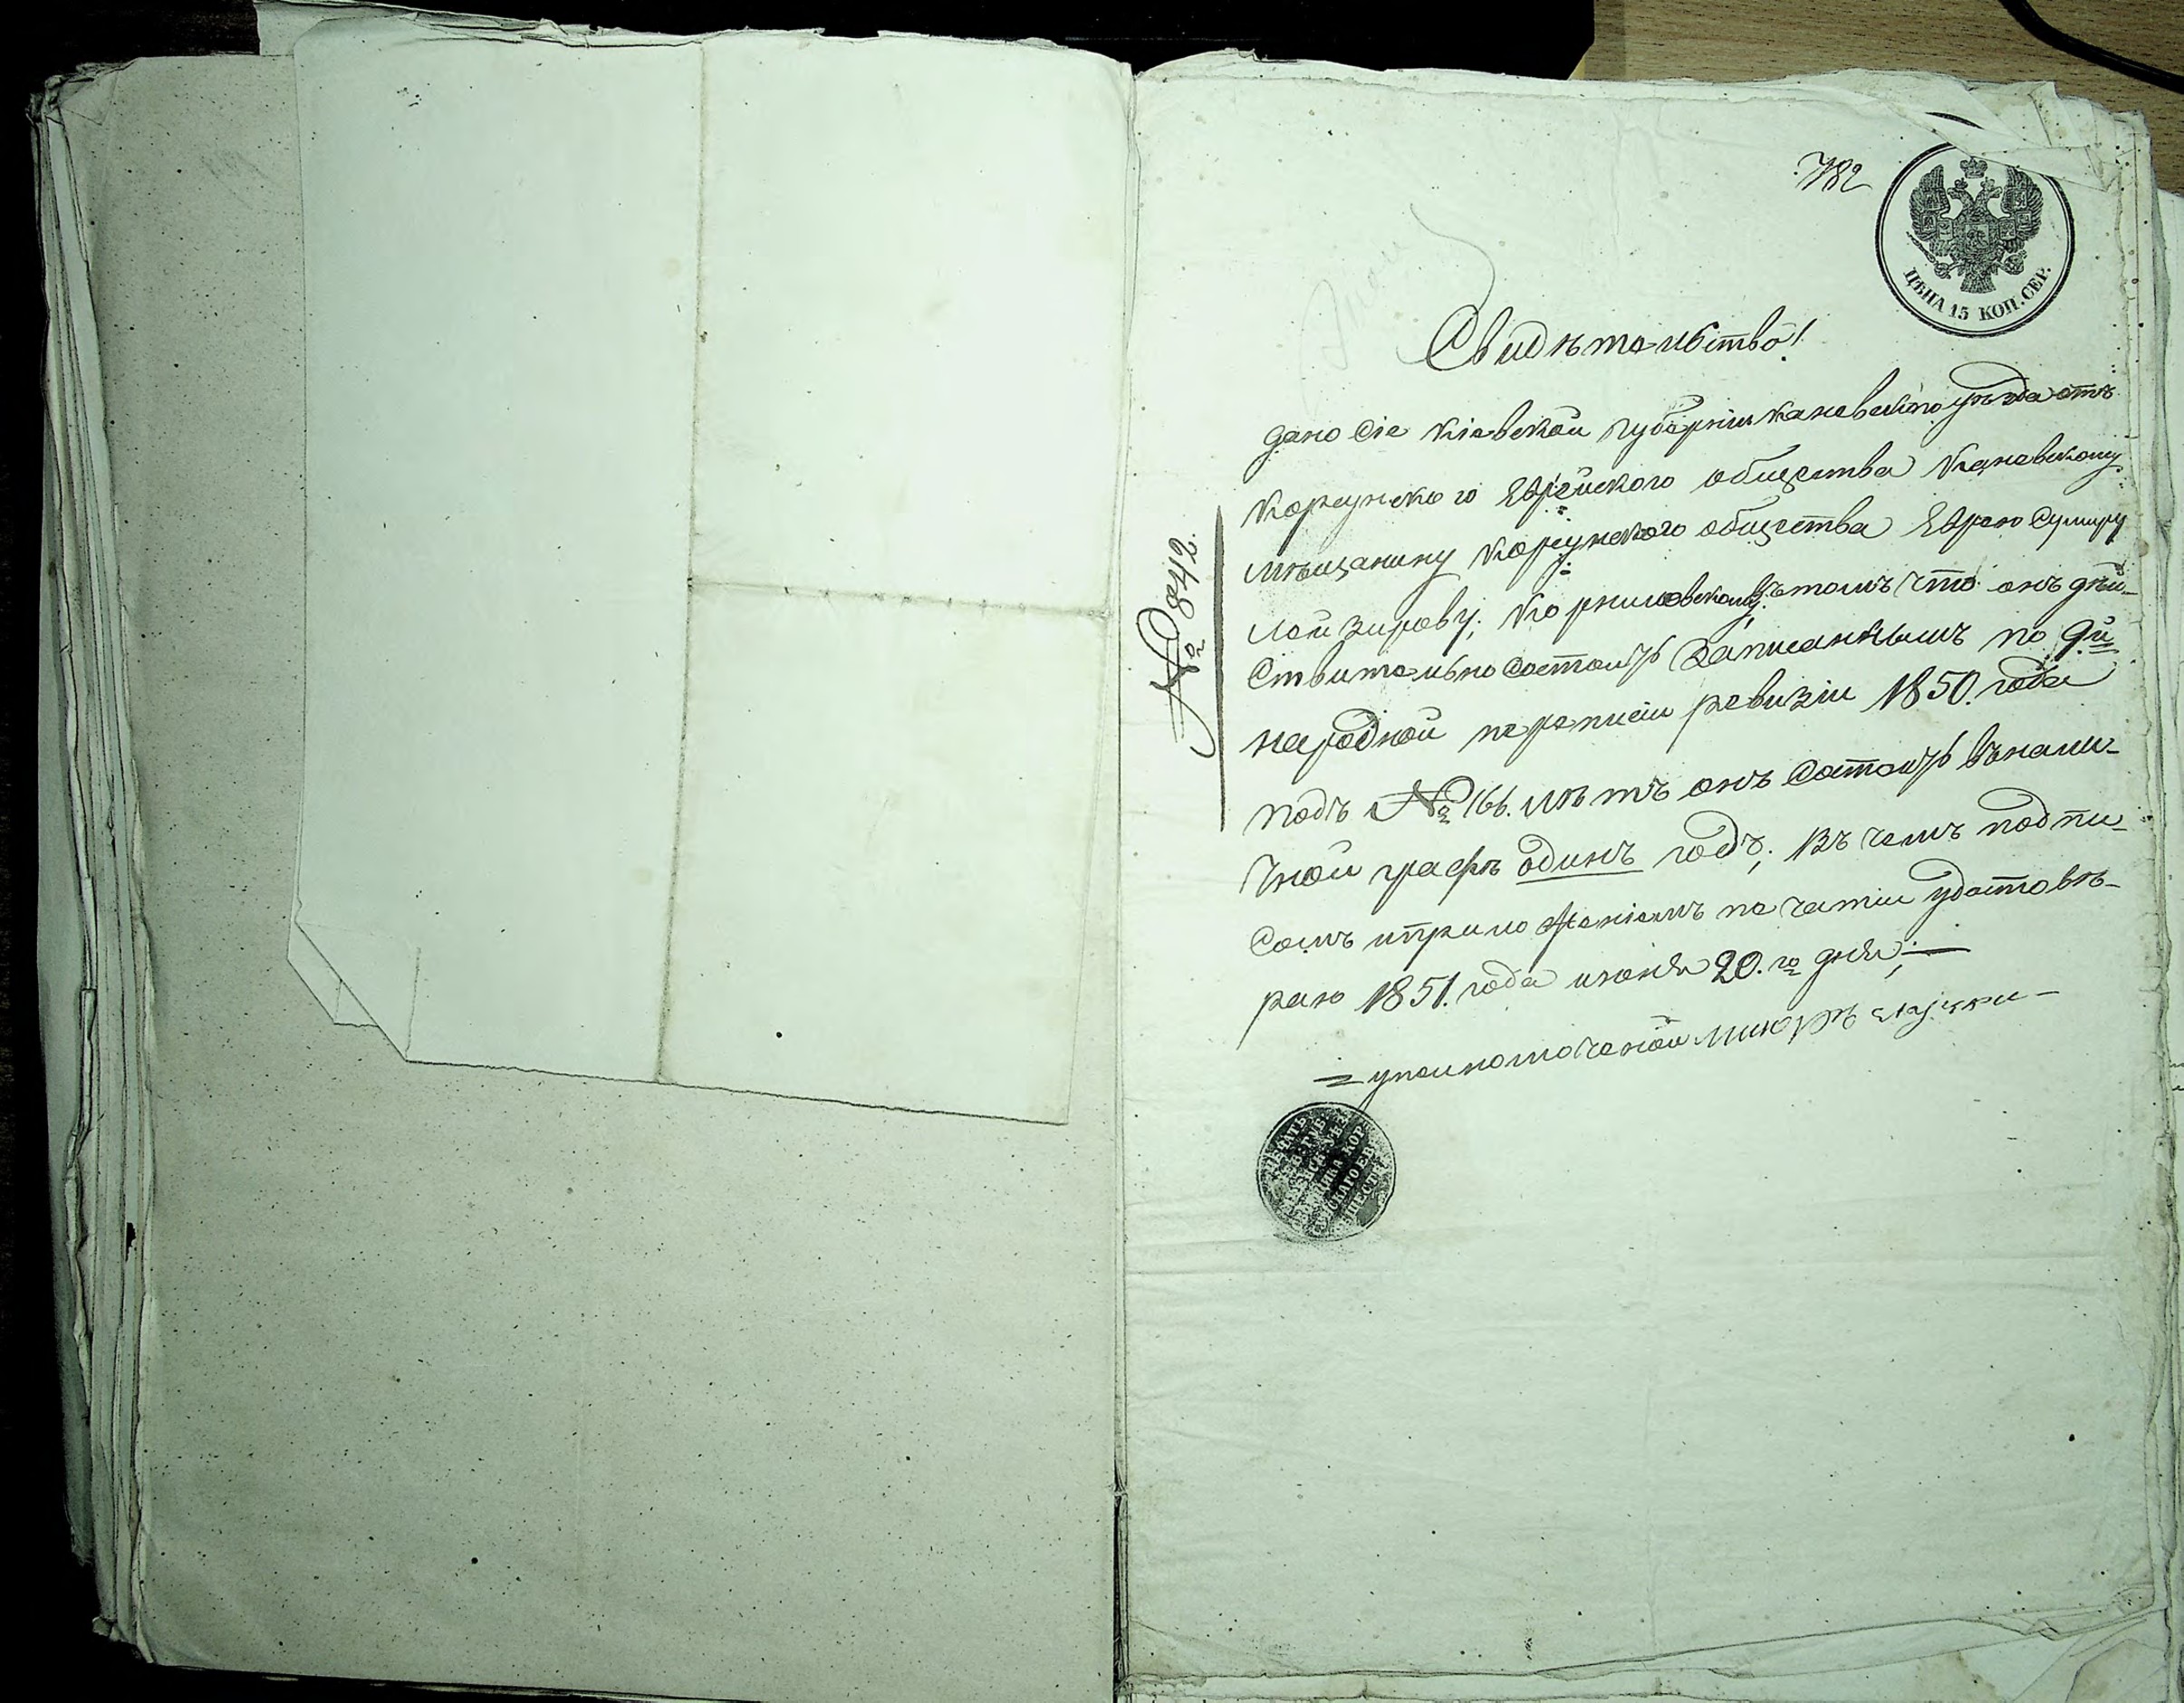 782
ЦѢНА 15 КОП. СЕР.
Свидѣтельство!
дано сіе кіевской губерніи каневскаго уѣзда отъ
корсунского Еврейского общества каневскому
мѣщанину корсунского общества Еврею
Лейзирову; въ томъ что онъ дѣй-
ствительно состоитъ записаннымъ по 9й
народной переписи ревизіи 1850. года
подъ № 166. лѣтъ онъ состоитъ вънали-
чной графѣ одинъ годъ; въ чемъ подпи-
сомъ иприложеніемъ печатіи удостовѣ-
раю 1851. года июня 20. го дня; —
№ 842.